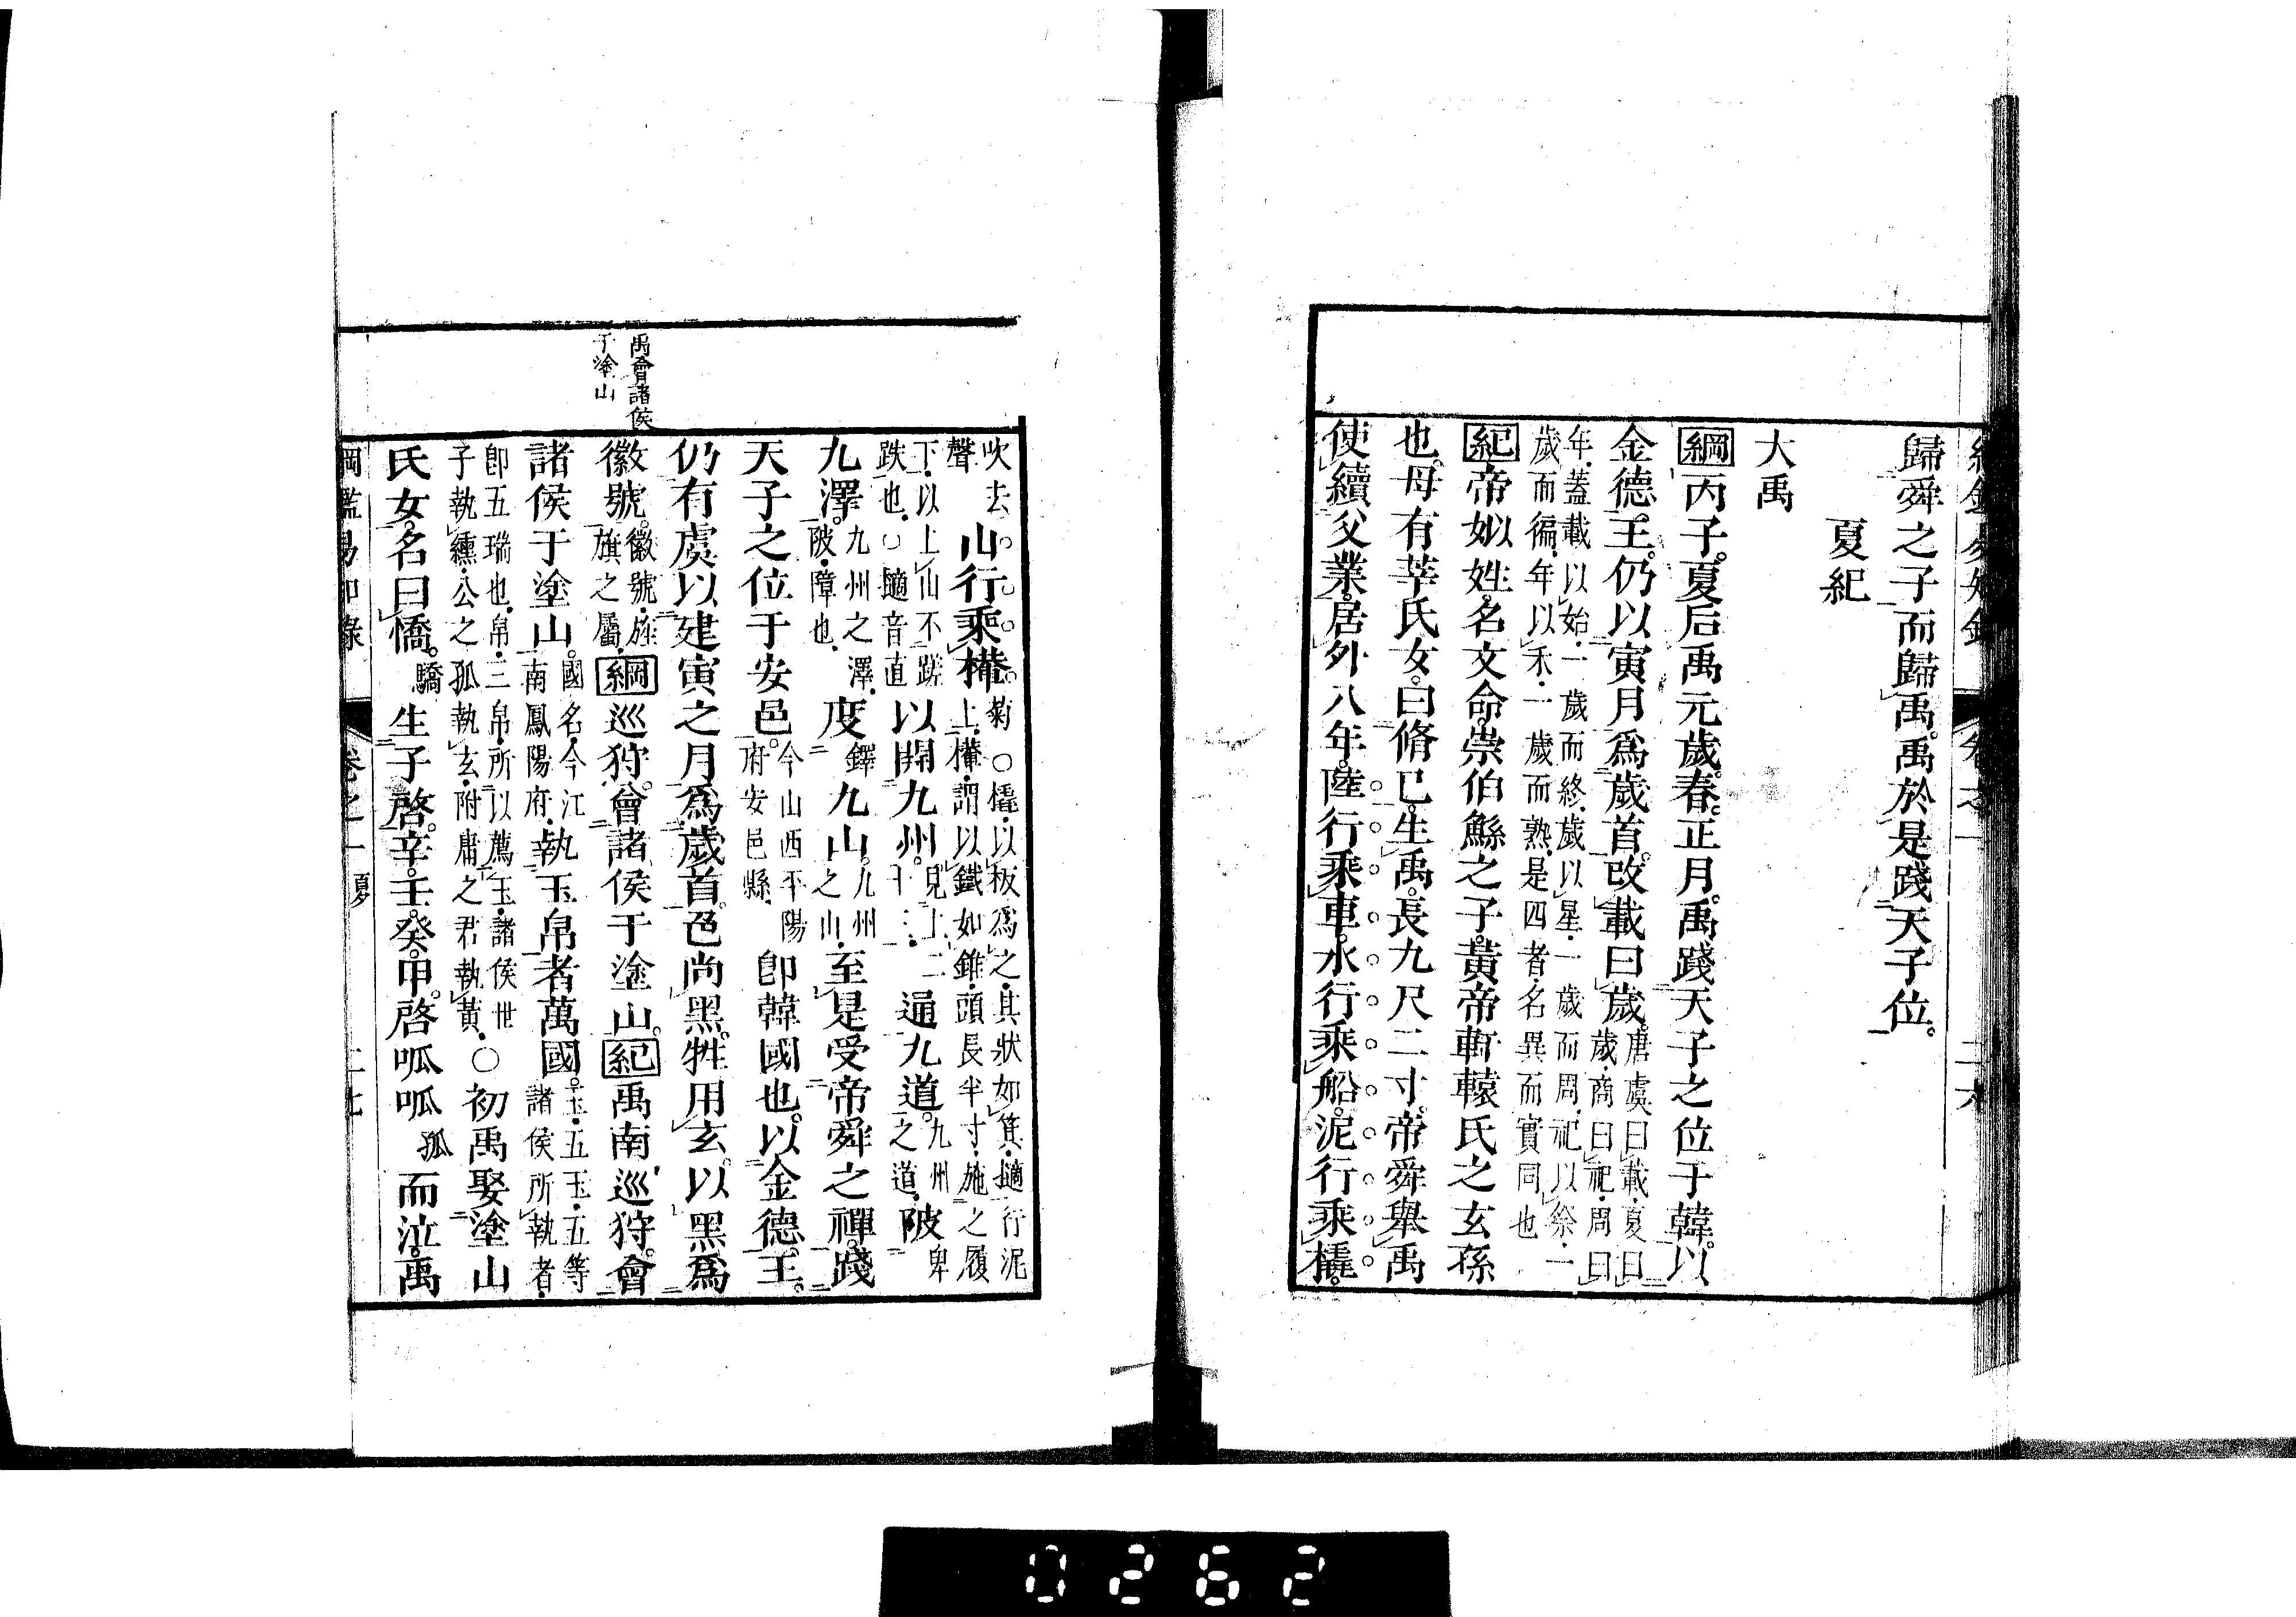 歸舜之子而歸禹。禹於是踐天子位。
夏紀
大禹
綱丙子。夏后禹元歲。春。正月。禹踐天子之位于韓。以
金德。王。仍以寅月爲歲首。改載曰歲。唐虞曰載。夏曰
歲。商曰祀。周曰
年。蓋載以始。一歲而終。歲以星。一歲而周。祀以祭。一
歲而徧。年以禾。一歲而熟。是四者。名異而實同也
紀帝姒姓。名文命。崇伯鯀之子。黃帝軒轅氏之玄孫
也。母有莘氏女。曰脩巳。生禹。長九尺二寸。帝舜舉禹
使續父業。居外八年。陸行乘車。水行乘船。泥行乘橇。
吹去
聲
山行乘檋。菊
上
○橇。以板爲之。其狀如箕。擿行泥
檋。謂以鐵如錐。頭長半寸。施之履
下。以上山不蹉
跌也。○擿音直
以開九州。見上二
十三。
通九道。九州
之道。
陂卑
九澤。九州之澤。
陂。障也。
度鐸九山。九州
之山。
至是受帝舜之禪。踐
天子之位于安邑。今山西平陽
府安邑縣。
卽韓國也。以金德。王。
仍有虞以建寅之月爲歲首。色尚黑。牲用玄。以黑爲
徽號。徽號。旌
旗之屬。
綱巡狩。會諸侯于塗山。紀禹南巡狩。會
諸侯于塗山。國名。今江
南鳳陽府。
執玉帛者萬國。玉。五玉。五等
諸侯所執者。
卽五瑞也。帛。三帛。所以薦玉。諸侯世
子執纁。公之孤執玄。附庸之君執黃。
○初禹娶塗山
氏女。名曰憍。驕生子啓。辛。壬。癸。甲。啓呱呱孤而泣。禹
禹會諸侯
于塗山
綱鑑易知錄 卷之一 夏 二七
0262